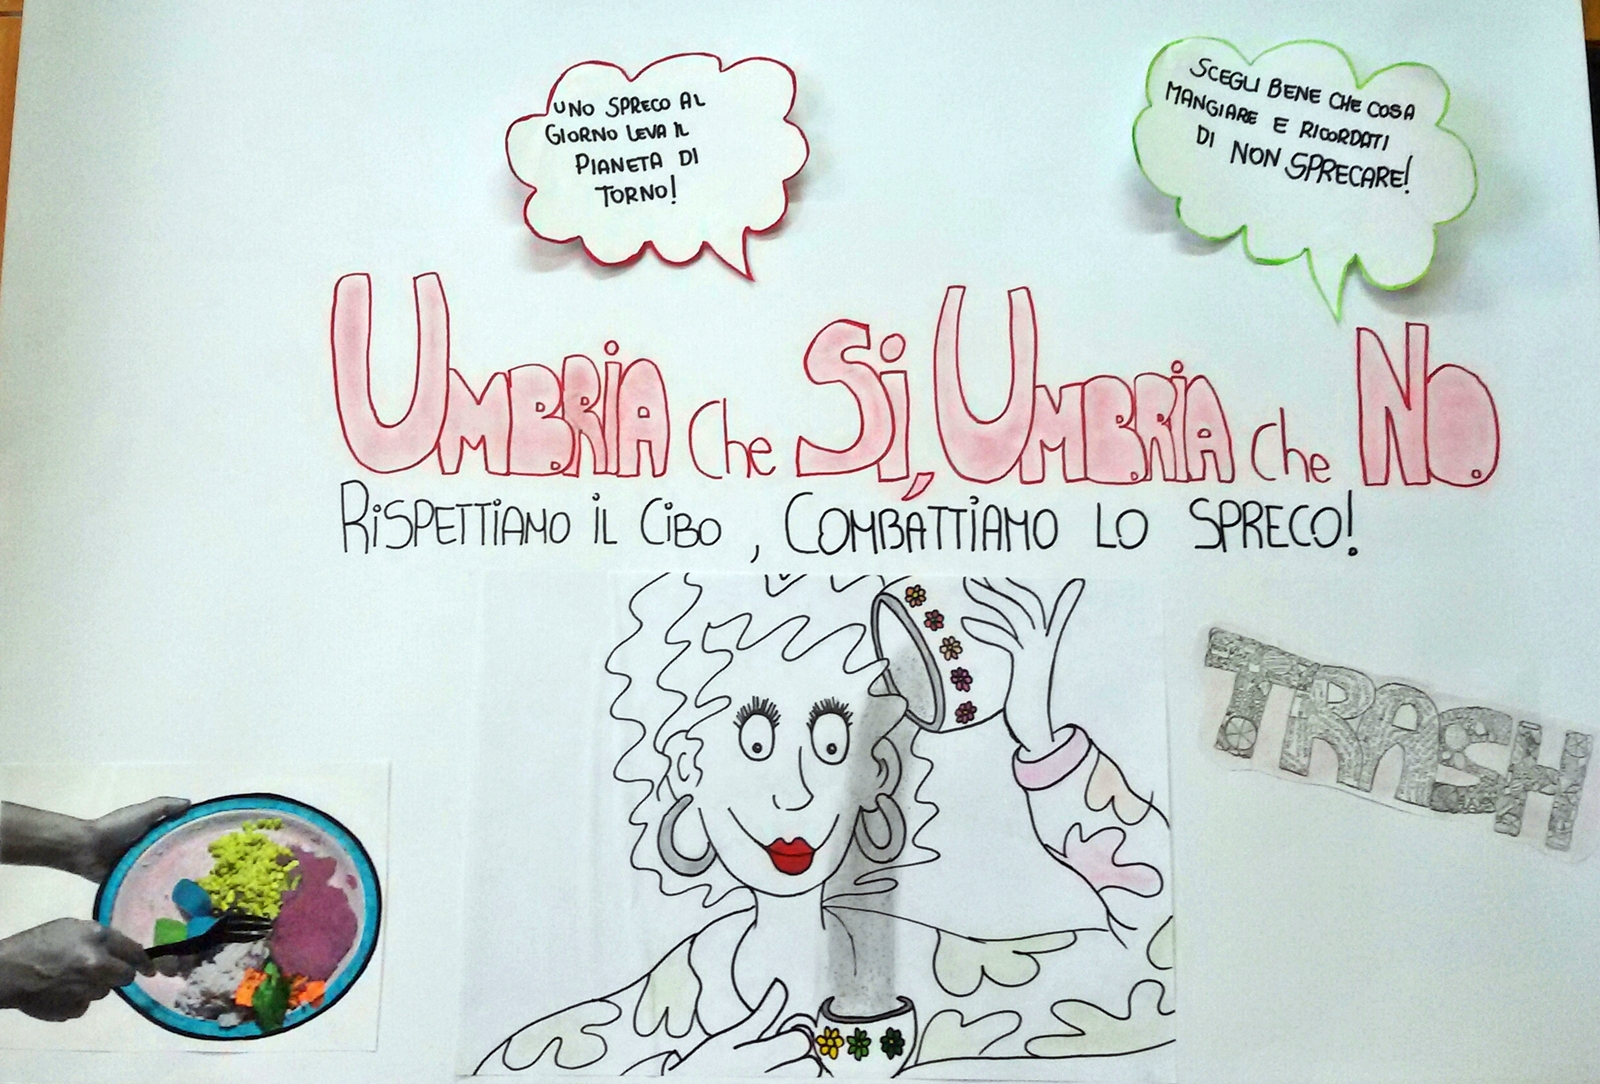 UNO SPRECO AL
GIORNO LEVA IL
PIANETA DI
TORNO!
SCEGLI BENE CHE COSA
MANGIARE E RICORDATI
DI NON SPRECARE!
UMBRIA Che Si, UMBRIA Che NO.
RiSPETTIAMO iL CiBO, COMBATTIAMO LO SPRECO!
TRASH